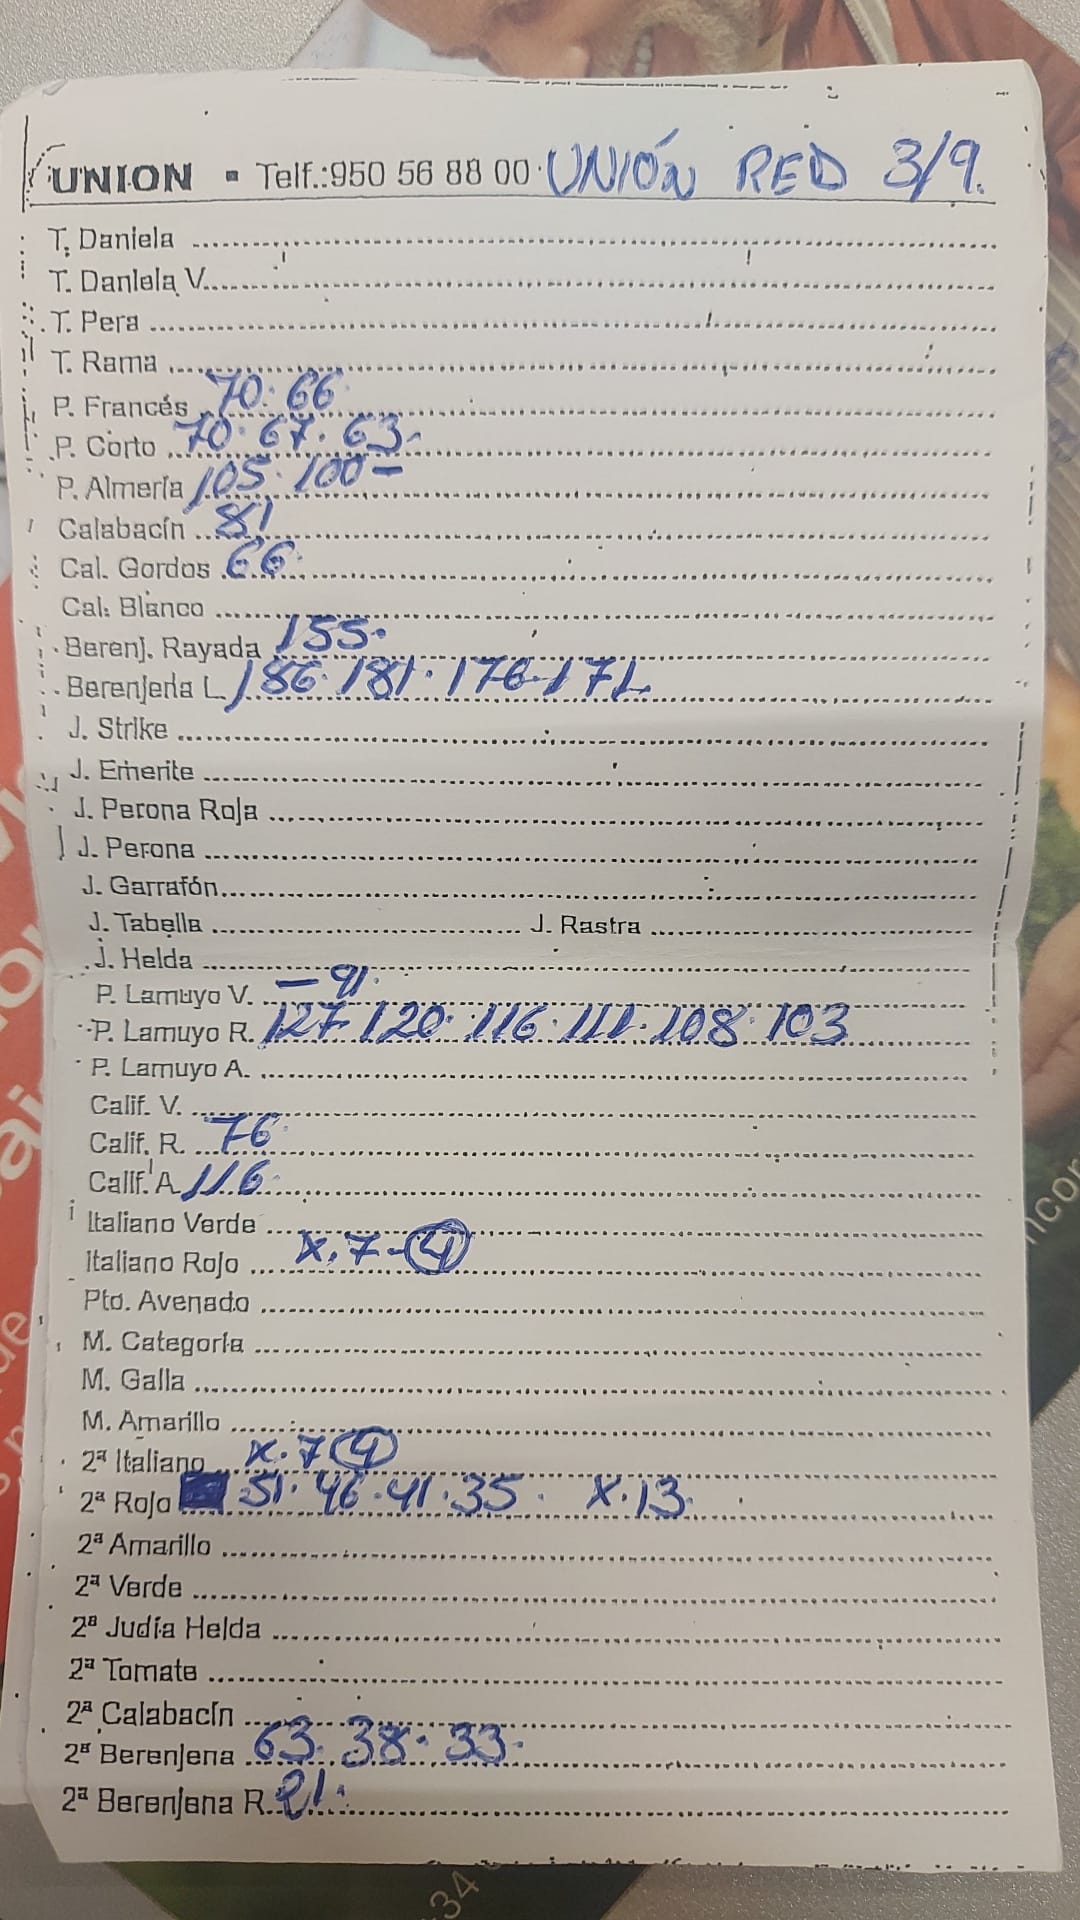 UNION ▪ Telf.:950 56 88 00 UNIÓN RED 3/9.
T. Daniela
T. Daniela V.
T. Pera
T. Rama
P. Francés 70. 66
P. Corto 70. 67. 63.
P. Almería 105. 100 -
Calabacín 81
Cal. Gordos 66
Cal. Blanco
Berenj. Rayada 155.
Berenjena L. 186. 181. 176. 171
J. Strike
J. Emerite
J. Perona Roja
J. Perona
J. Garrafón
J. Tabella J. Rastra
J. Helda
P. Lamuyo V. - 91.
P. Lamuyo R. 127. 120. 116. 111. 108. 103
P. Lamuyo A.
Calif. V.
Calif. R. 76
Calif. A. 116
Italiano Verde
Italiano Rojo X. 7 - 4
Pto. Avenado
M. Categoría
M. Galla
M. Amarillo
2ª Italiano X. 7 4
2ª Rojo 51. 46. 41. 35. X. 13.
2ª Amarillo
2ª Verde
2ª Judía Helda
2ª Tomate
2ª Calabacín
2ª Berenjena 63. 38. 33.
2ª Berenjena R. 21.
34